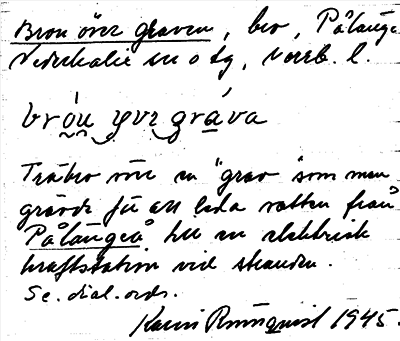 Bron över graven, bro, Pålänge
Nederkalix sn o tg, Norrb. l.
bró̰u̯ yvɛr grá̱va
Träbro över en "grav" som man
grävde för att leda vatten från
Pålängeå till en elektrisk
kraftstation vid stranden.
Se. dial. ordb.
Karin Rönnqvist 1945.